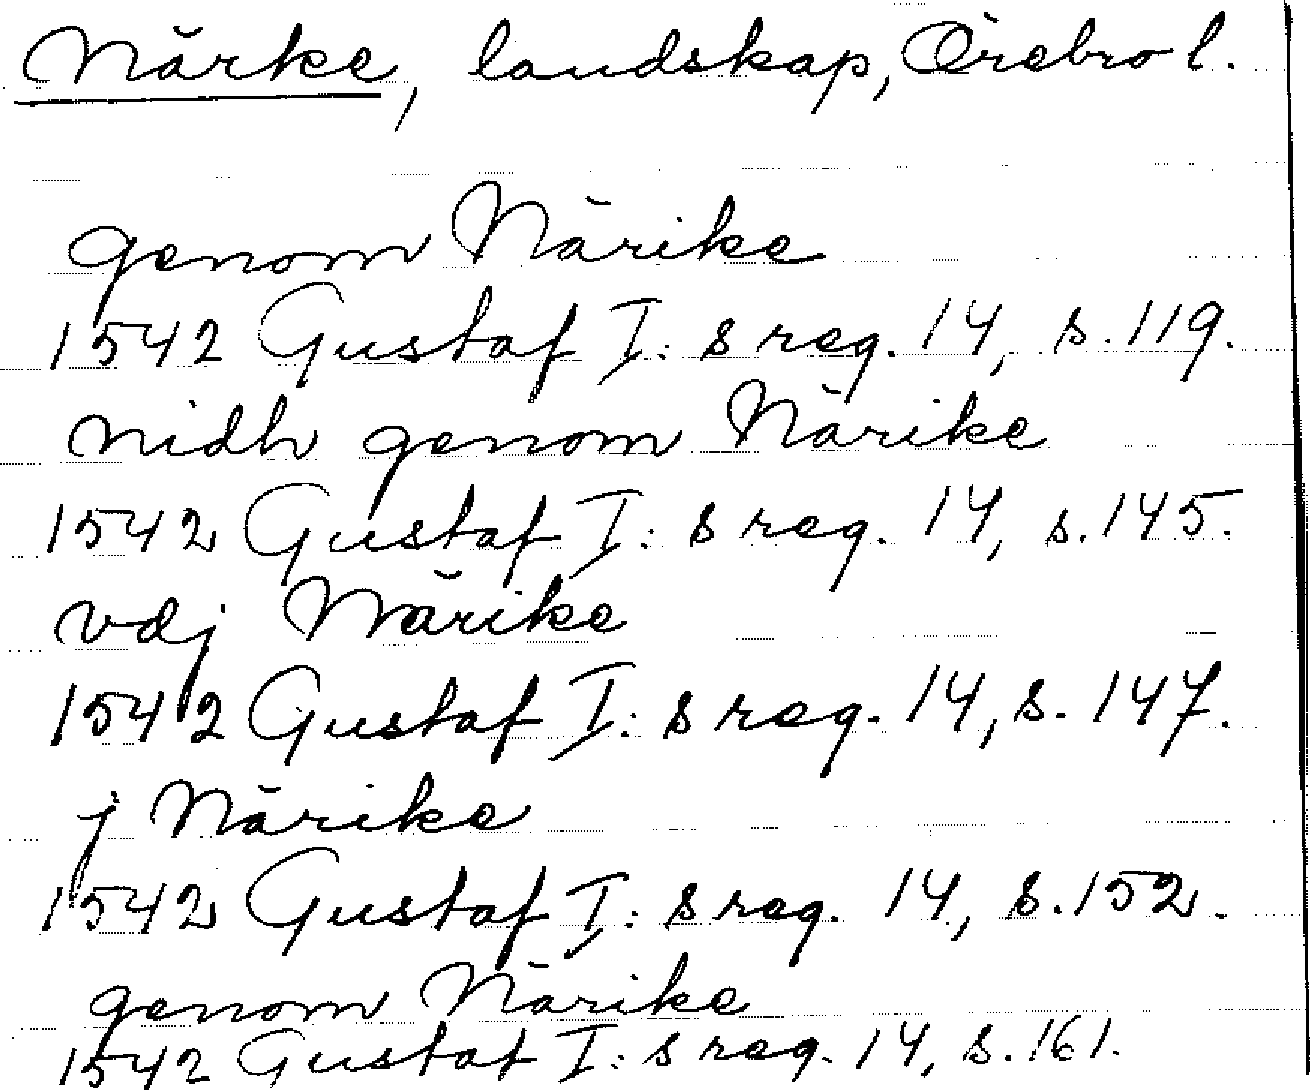 Närke, landskap, Örebro l.
genom Närike
1542 Gustaf I:s reg. 14, s. 119.
nidh genom Närike
1542 Gustaf I:s reg. 14, s. 145.
vdj Närike
1542 Gustaf I:s reg. 14, s. 147.
j Närike
1542 Gustaf I:s reg. 14, s. 152.
genom Närike
1542 Gustaf I:s reg. 14, s. 161.